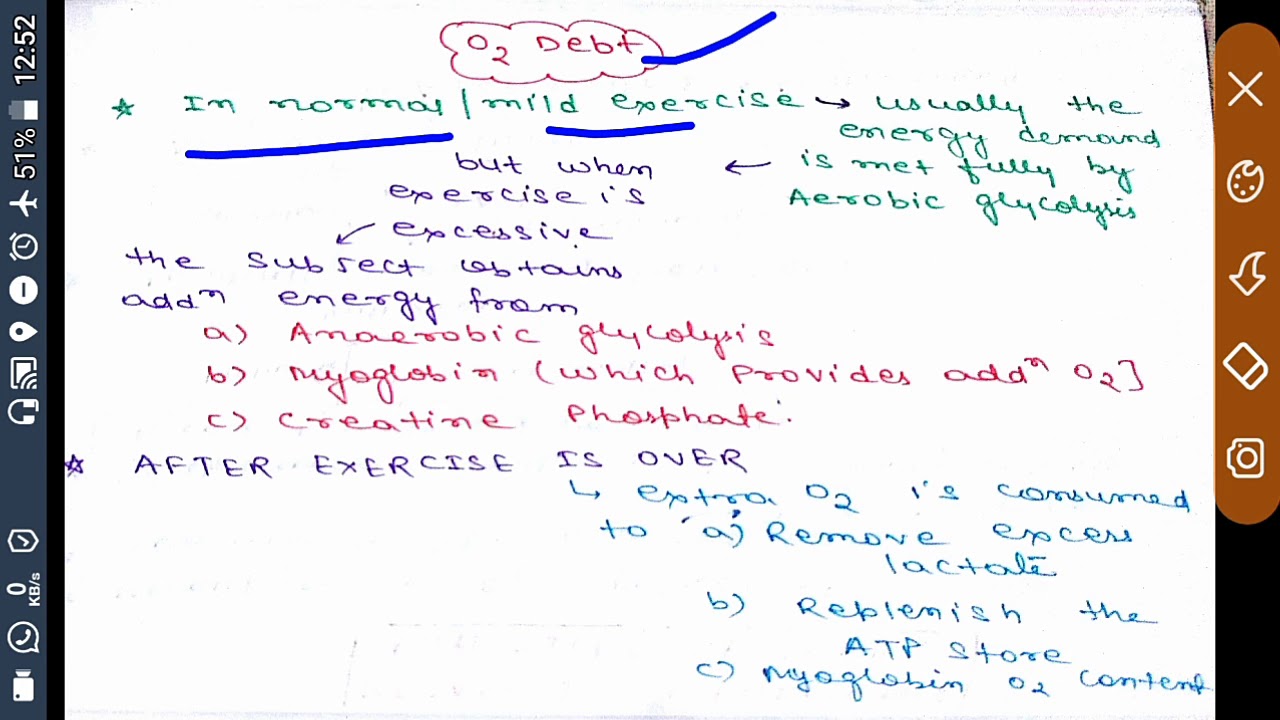 O2 Debt
* In normal / mild exercise → usually the
energy demand
but when ← is met fully by
exercise is Aerobic glycolysis
↙ excessive
the subject obtains
addⁿ energy from
a) Anaerobic glycolysis
b) Myoglobin (which provides addⁿ O2]
c) Creatine Phosphate.
* AFTER EXERCISE IS OVER
↳ extra O2 is consumed
to a) Remove excess
lactate
b) Replenish the
ATP store
c) Myoglobin O2 content
12:52
51%
0
KB/s